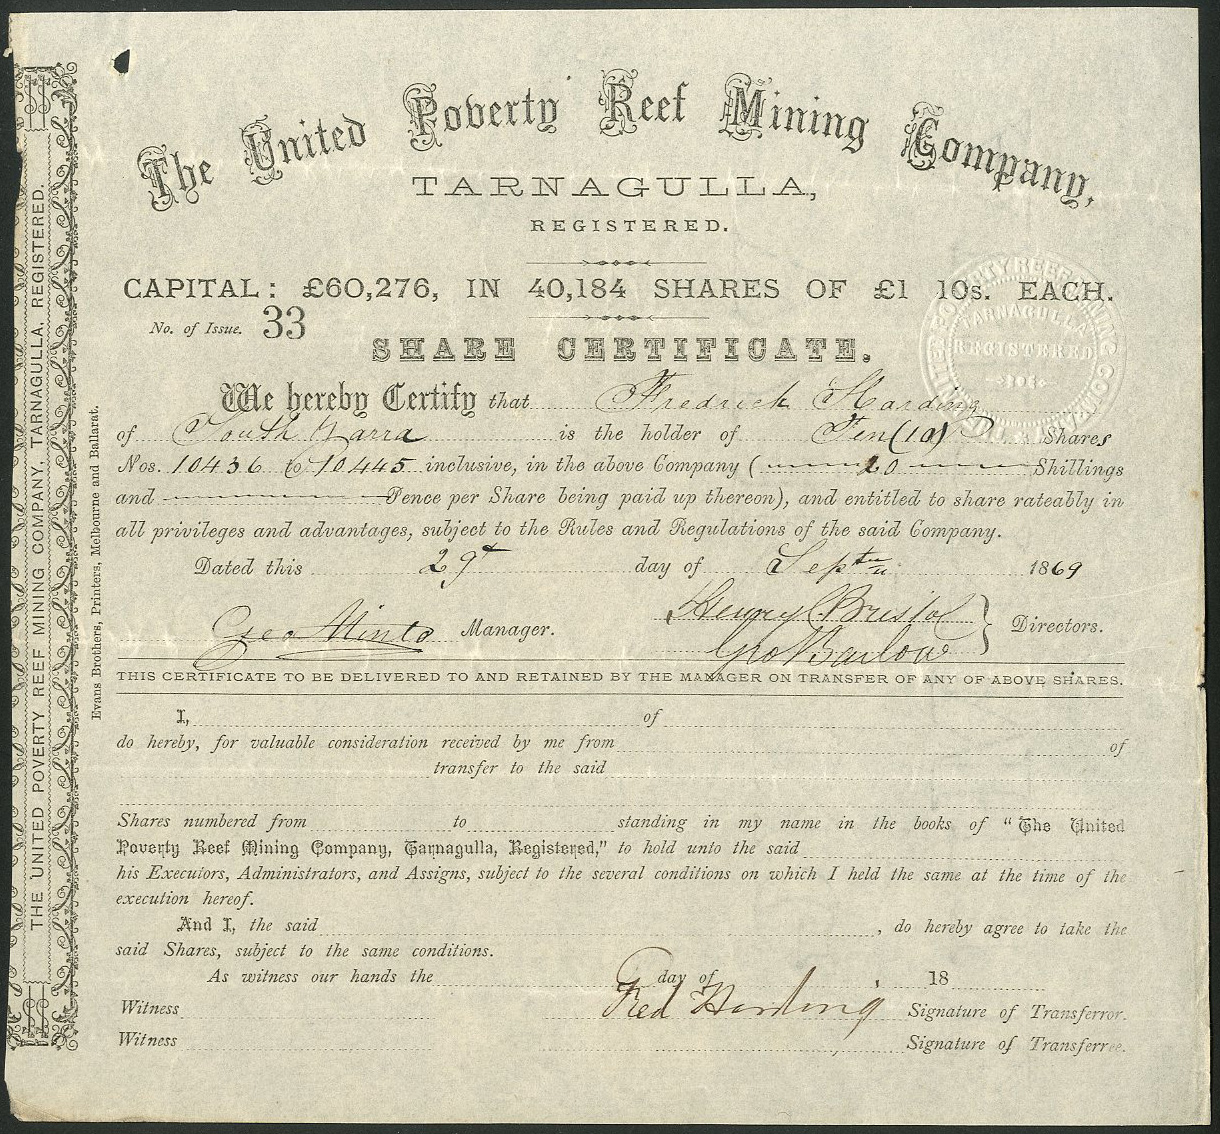 The United Poverty Reef Mining Company,
TARNAGULLA,
REGISTERED.
CAPITAL: £60,276, IN 40,184 SHARES OF £1 10s. EACH.
No. of Issue. 33
SHARE CERTIFICATE.
We hereby Certify that Fredrick Harding
of South Yarra is the holder of Ten (10) Shares
Nos. 10436 to 10445 inclusive, in the above Company ( 20 Shillings
and Pence per Share being paid up thereon), and entitled to share rateably in
all privileges and advantages, subject to the Rules and Regulations of the said Company.
Dated this 29th day of Septr 1869
Geo Minto Manager. Henry Bristol
Geo Barlow } Directors.
THIS CERTIFICATE TO BE DELIVERED TO AND RETAINED BY THE MANAGER ON TRANSFER OF ANY OF ABOVE SHARES.
I, of
do hereby, for valuable consideration received by me from of
transfer to the said
Shares numbered from to standing in my name in the books of "The United
Poverty Reef Mining Company, Tarnagulla, Registered," to hold unto the said
his Executors, Administrators, and Assigns, subject to the several conditions on which I held the same at the time of the
execution hereof.
And I, the said , do hereby agree to take the
said Shares, subject to the same conditions.
As witness our hands the day of 18
Witness Fred Harding Signature of Transferror.
Witness Signature of Transferree.
THE UNITED POVERTY REEF MINING COMPANY, TARNAGULLA, REGISTERED.
Evans Brothers, Printers, Melbourne and Ballarat.
UNITED POVERTY REEF MINING COMPANY
TARNAGULLA
REGISTERED